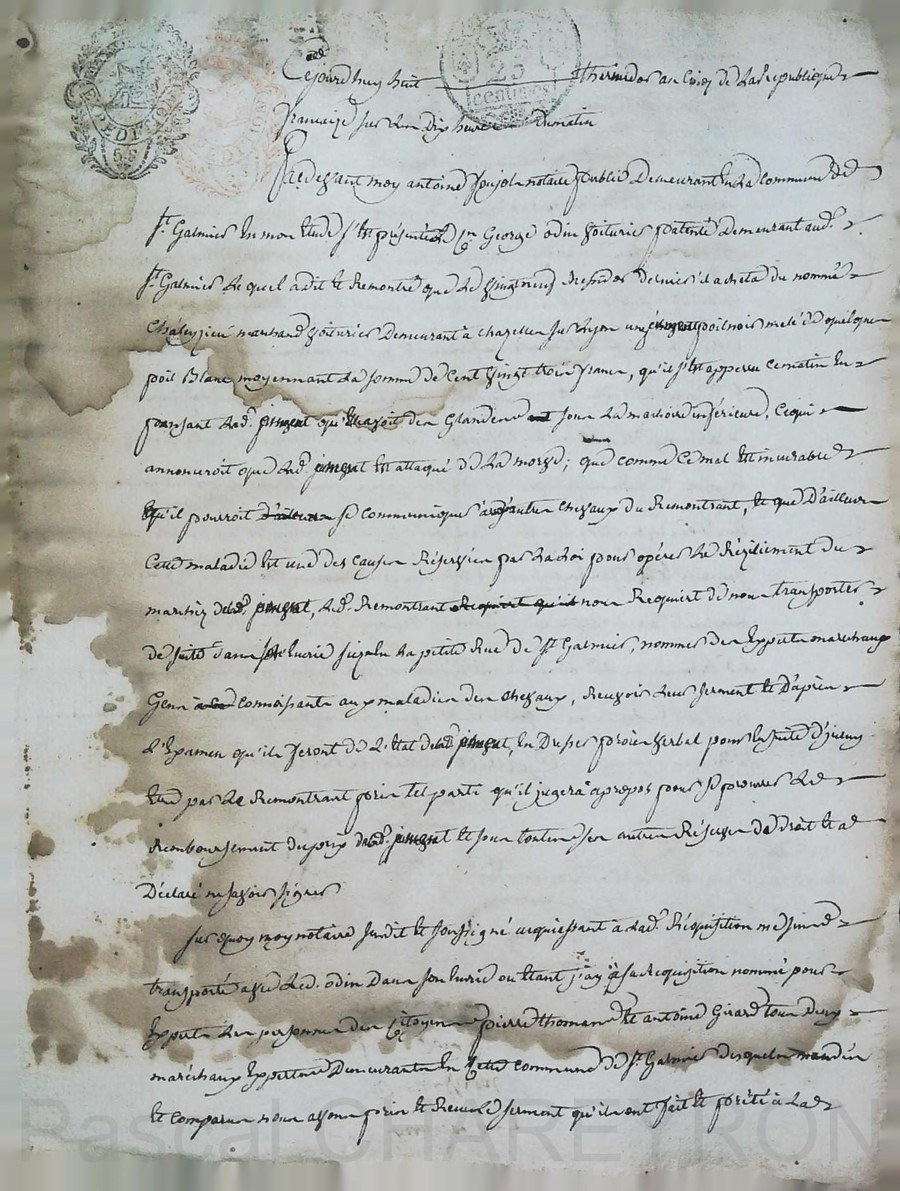 EXPEDITION
25
centimes
Cejourdhuy huit thermidor an Cinq de La republique
francaize sur Les Dix heures Dumatin
Pardevant moy antoine Pujol notaire public Demeurant En La Commune de
St. Galmier En mon Etude s'Est présenté Cn George odin Voiturier patenté demeurant aud.
St. Galmier Lequel a dit Et Remontré que Le Vingt neuf Messidor dernier il acheta du nommé
marchand Voiturier Demeurant à chazelles sur Lyon une jument poil noir melé de quelque
poil Blanc, moyennant La somme de Cent Vingt trois francs, qu'il s'Est apperçu Cematin En
pansant Lad. jument qu'Elle avoit des Glandes sous La machoire inférieure, Cequi
annonceroit que Lad. jument Est attaqué de La morve; que comme Ce mal Est incurable
Et qu'il pourroit se Communiquer aux autres chevaux du Remontrant, Et que D'ailleurs
Cette maladie Est une des Causes Réservées par La Loi pour opérer Le Résiliement du
marché de lad. jument, Led. Remontrant nous Requiert de nous transporter
de suite dans son Ecurie size En La petite Rue de St. Galmier, nommer des Experts marechaux
Gens Connoissants aux maladies des chevaux, Recevoir Leur serment Et D'après
L'Examen qu'ils feront de L'Etat de lad. jument, En Dresser procès Verbal pour Ensuite D'iceluy
Etre par Le Remontrant pris tel parti qu'il jugera à propos pour se procurer Le
Remboursement du prix de lad. jument Et sous toutes ses autres Réserves de Droit Et a
Déclaré ne savoir signer
Sur quoy moy notaire susdit Et soussigné acquiessant à Lad. Réquisition me suis
transporté avec Led. odin Dans son Ecurie ou Etant j'ay à sa Requisition nommé pour
Experts Les personnes des Citoyens pierre thomas Et antoine Girard tous Deux
maréchaux Experts Demeurants En Cette Commune de St. Galmier desquels mandés
Et comparus nous avons pris Et Recu Le serment qu'ils ont fait Et prêté à La
Pascal CHAREYRON